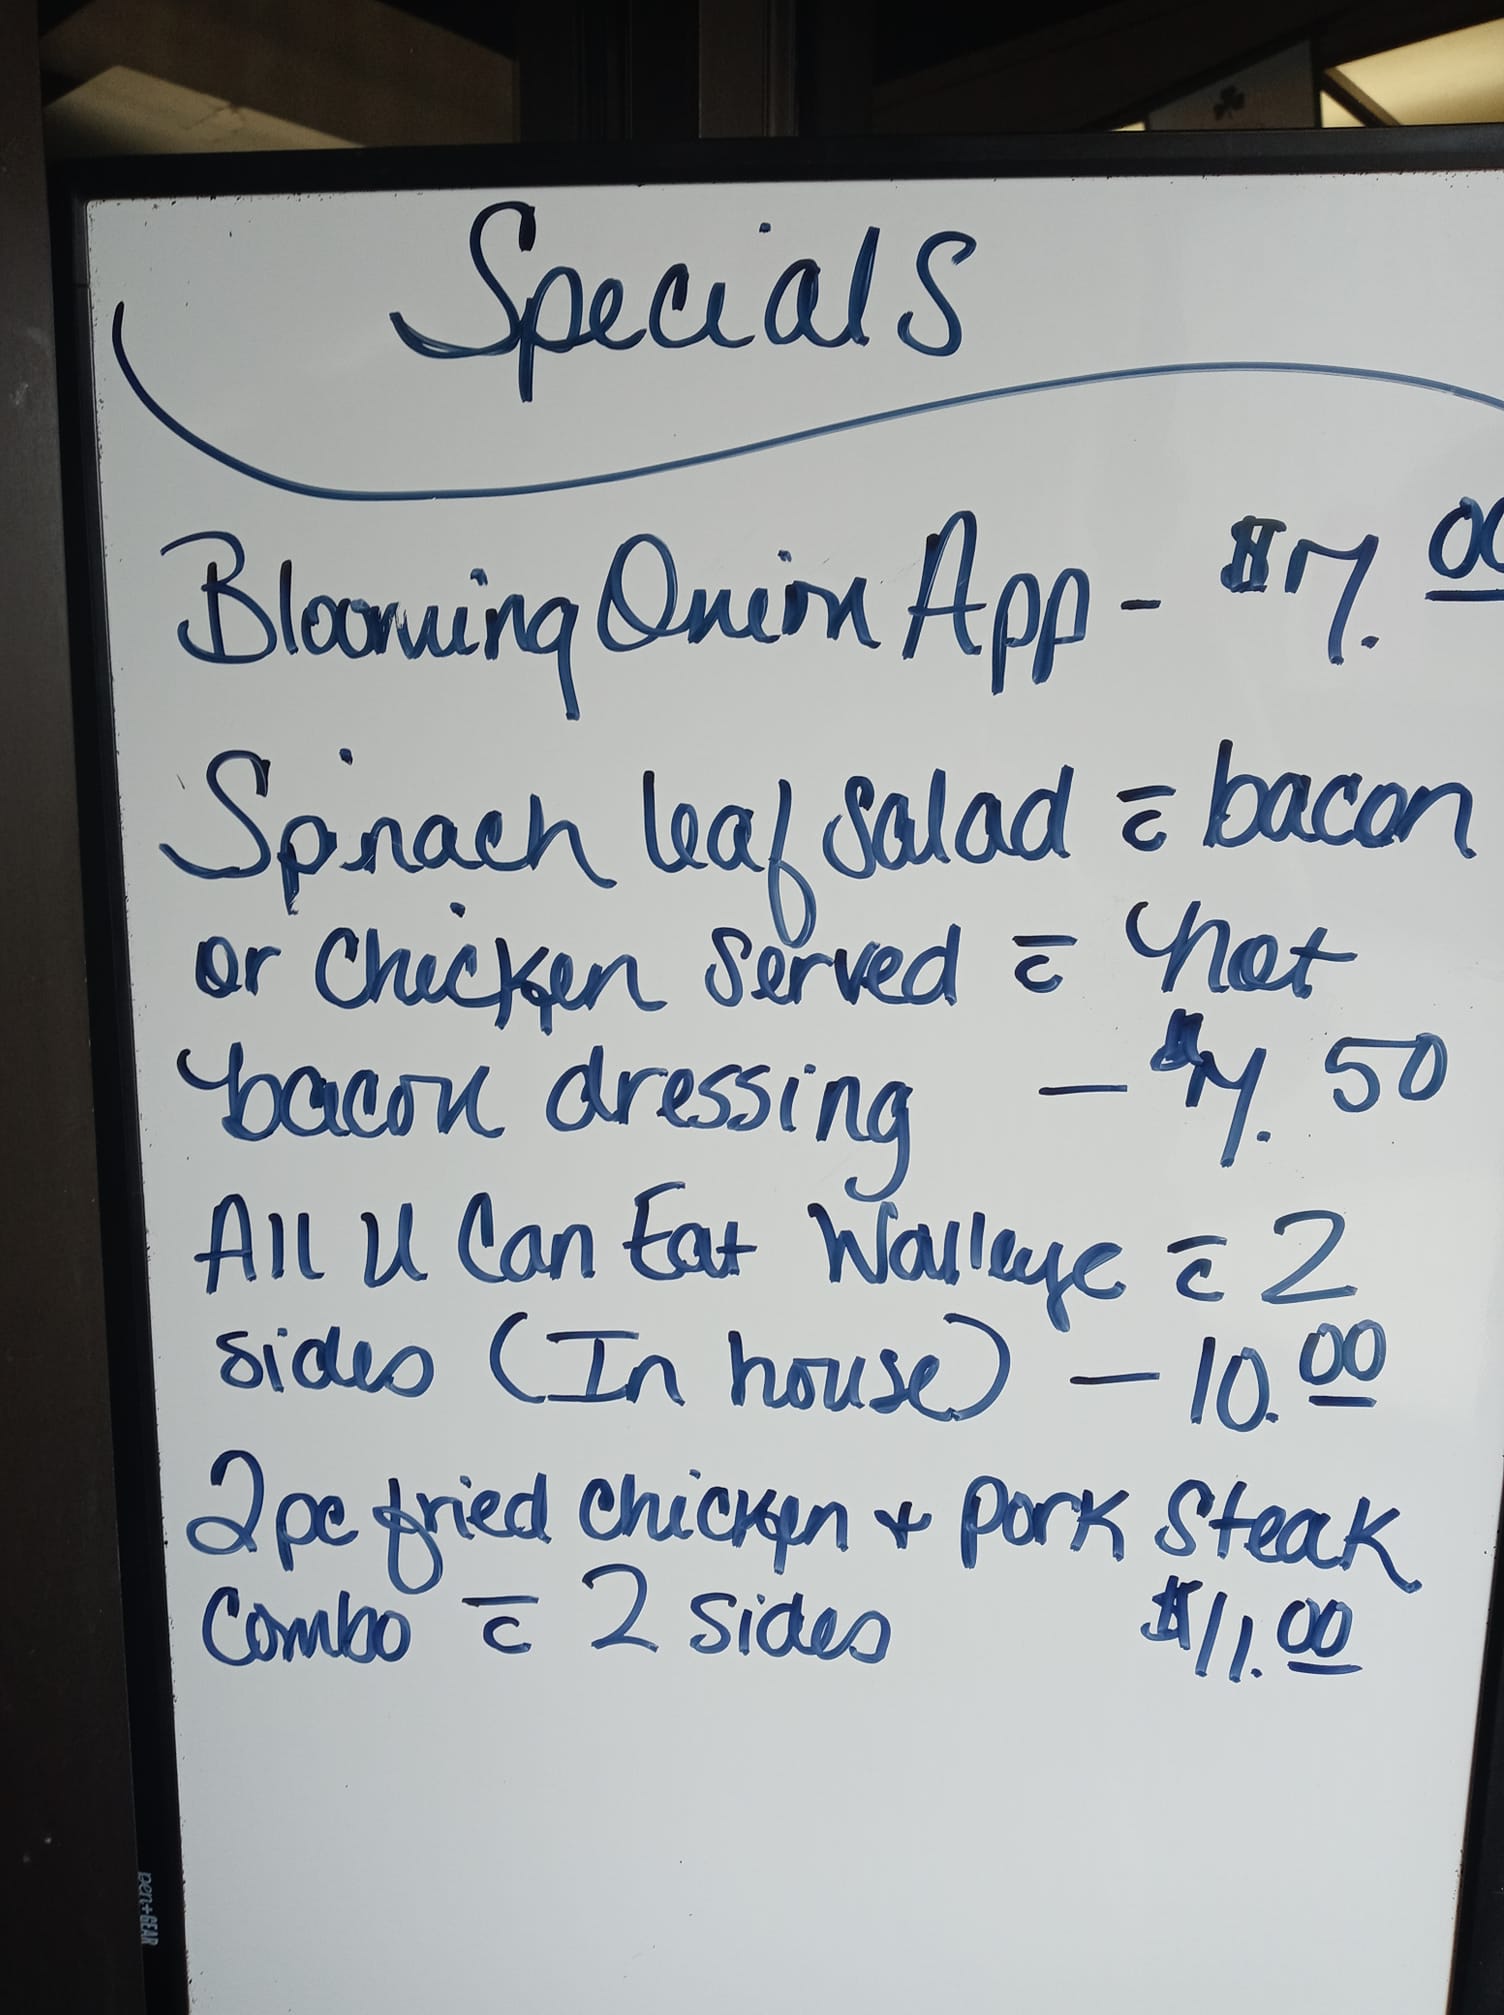 Specials
Blooming Onion App - $7.00
Spinach leaf Salad c̄ bacon
or Chicken Served c̄ hot
bacon dressing - $7.50
All U Can Eat Walleye c̄ 2
sides (In house) - 10.00
2pc fried chicken + pork Steak
Combo c̄ 2 sides $11.00
pen+GEAR